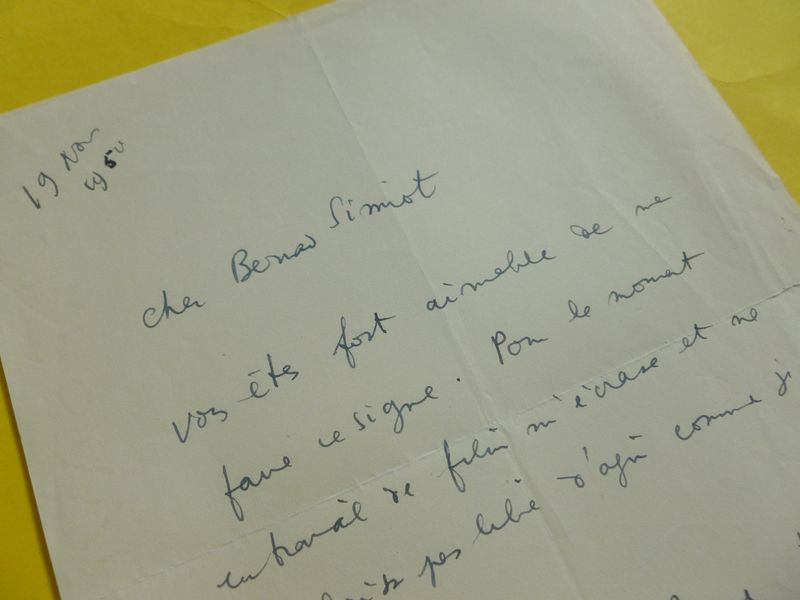 19 Nov
1950
cher Bernard Simiot
vous êtes fort aimable de me
faire ce signe. Pour le moment
un travail de film m'écrase et me
pas libre d'agir comme je